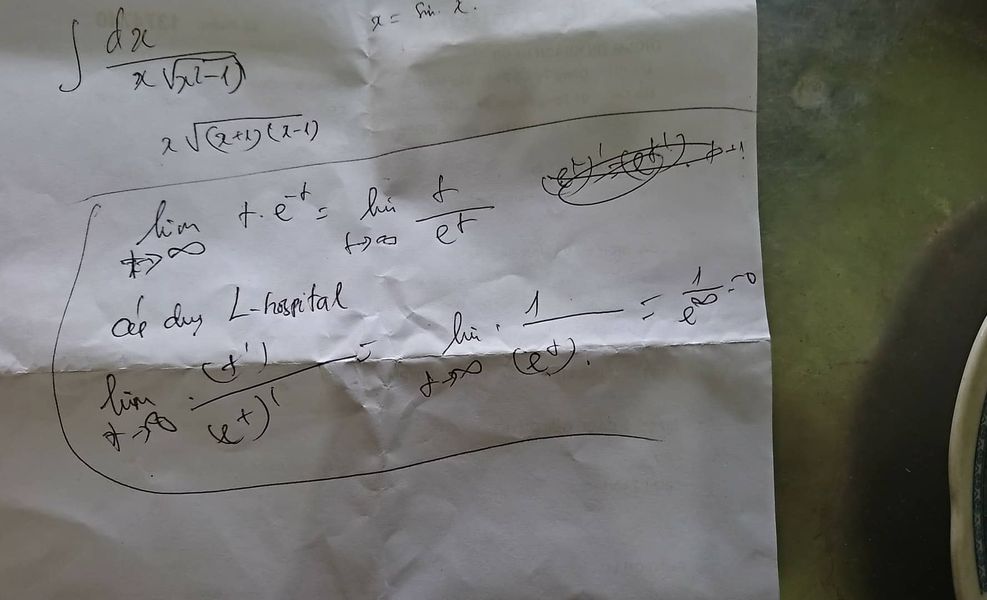 ∫ dx / x√(x²-1)
x = sin x.
x√(x+1)(x-1)
lim t→∞ t.e^-t = lim t→∞ t / e^t
áp dụng L-hospital
lim t→∞ (t') / (e^t)' = lim t→∞ 1 / (e^t). = 1 / e^∞ = 0